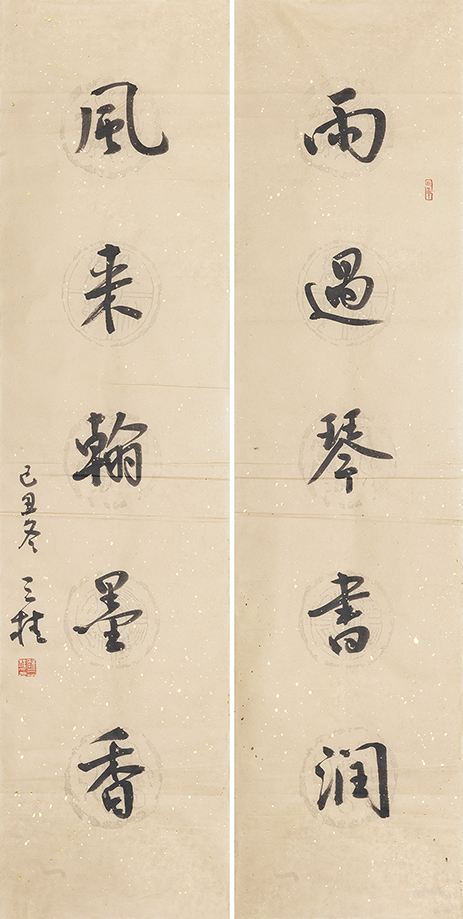 雨過琴書润
風来翰墨香
己丑冬 三桂